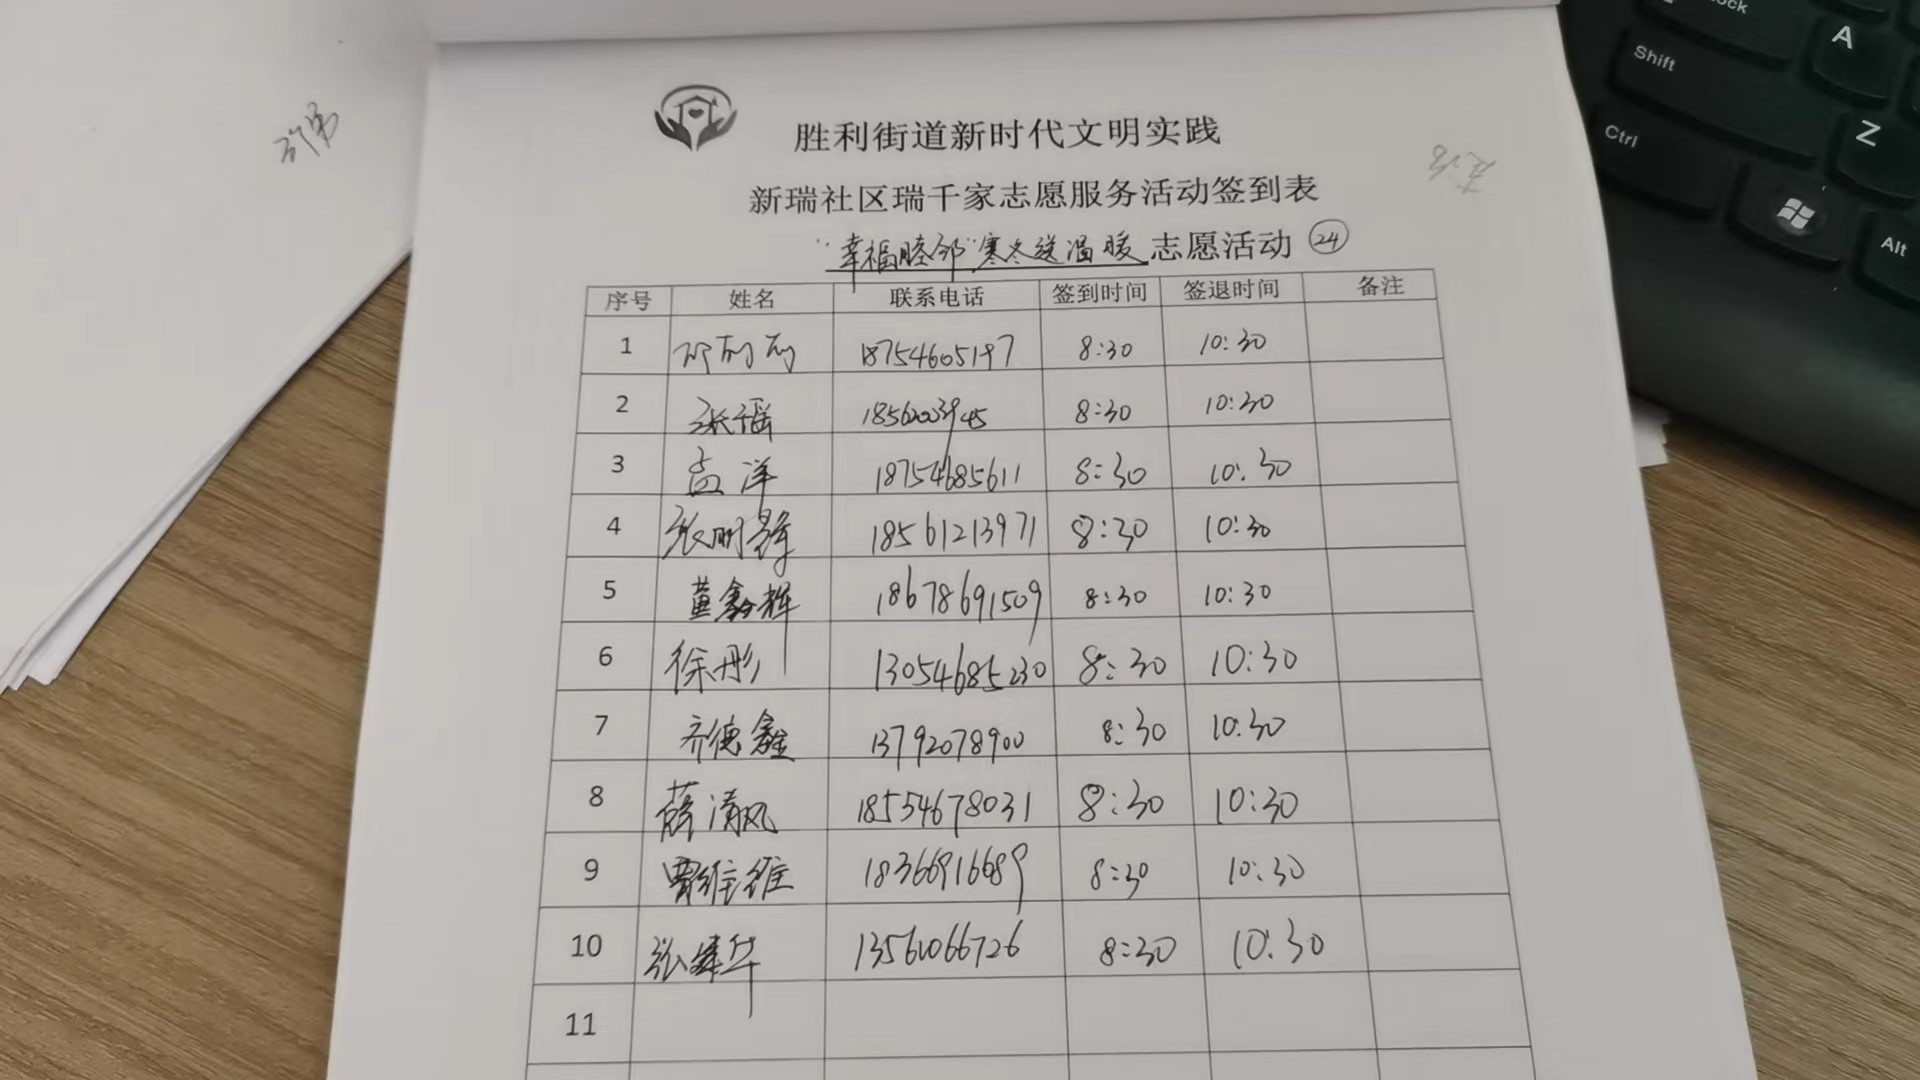 胜利街道新时代文明实践
新瑞社区瑞千家志愿服务活动签到表
“幸福睦邻”寒冬送温暖 志愿活动 ㉔
序号 姓名 联系电话 签到时间 签退时间 备注
1 18754605197 8:30 10:30
2 张瑶 8:30 10:30
3 孟洋 18754685611 8:30 10:30
4 张明 18561213971 8:30 10:30
5 黄鑫辉 18678691509 8:30 10:30
6 徐彤 13054685230 8:30 10:30
7 齐德鑫 13792078900 8:30 10:30
8 薛清风 18554678031 8:30 10:30
9 贾维维 18366916689 8:30 10:30
10 张峰华 13561066726 8:30 10:30
11
Lock
A
Shift
Z
Ctrl
Alt